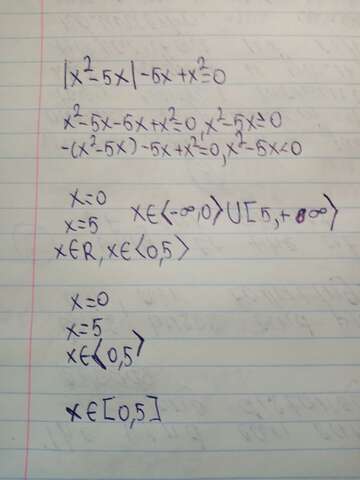 |x²-5x|-5x+x²=0
x²-5x-5x+x²=0, x²-5x≥0
-(x²-5x)-5x+x²=0, x²-5x<0
x=0
x=5 x∈⟨-∞,0⟩∪[5,+∞⟩
x∈R, x∈⟨0,5⟩
x=0
x=5
x∈⟨0,5⟩
x∈[0,5]